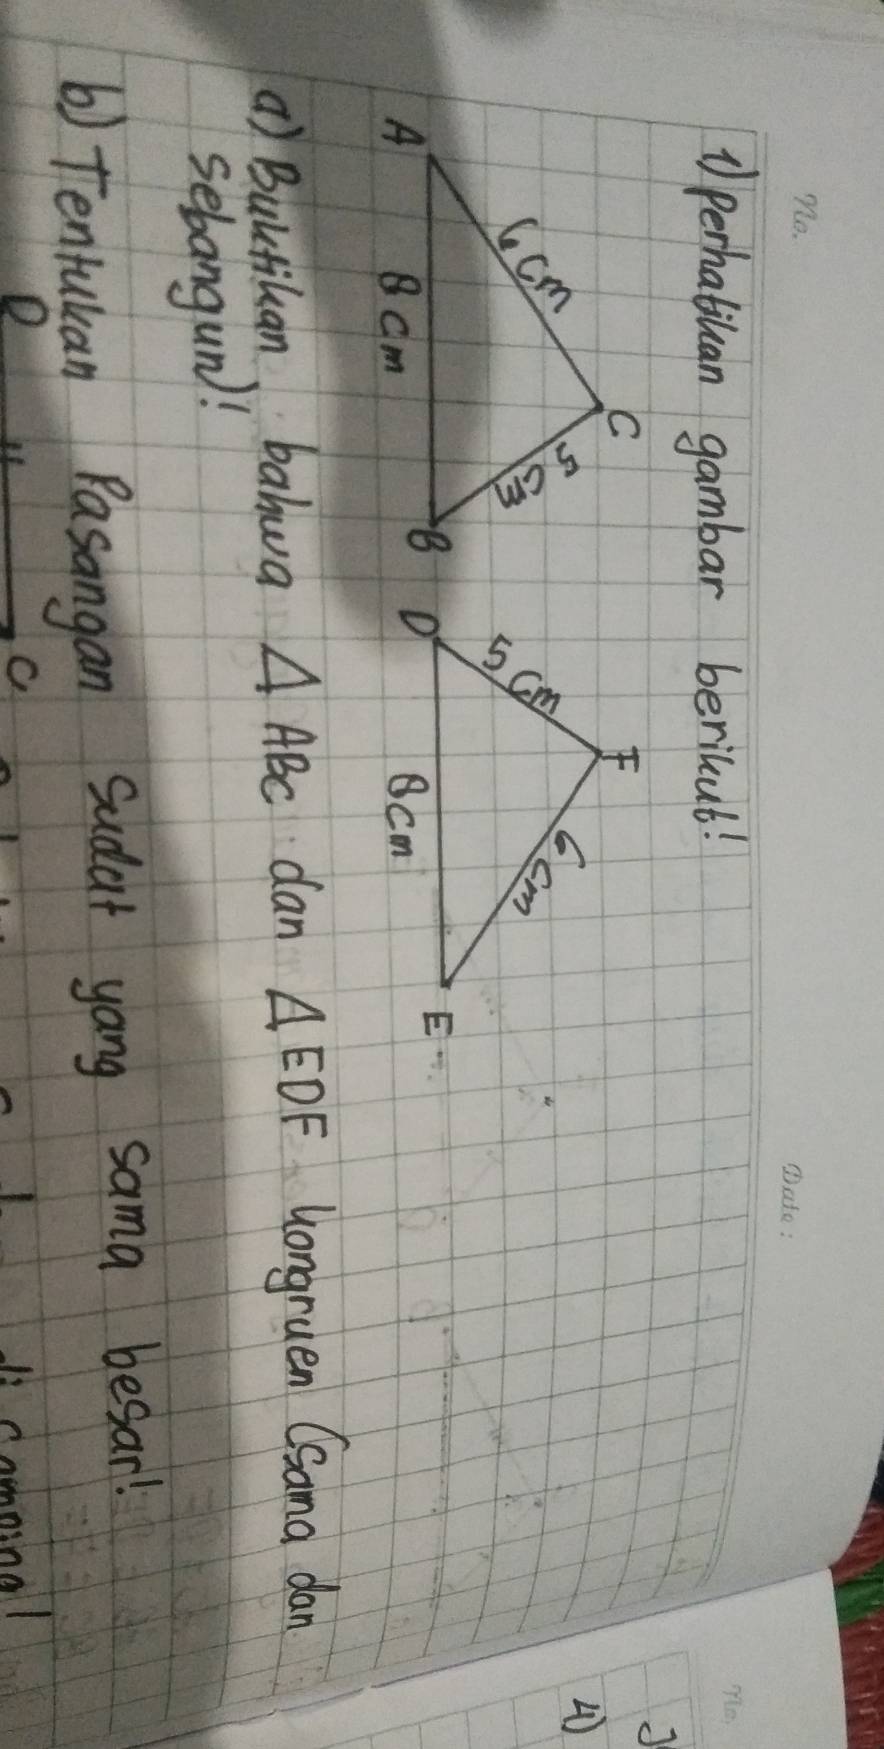 No.
Date:
1) Perhatikan gambar berikut!
C
F
6 cm
5 cm
5 cm
6 cm
A
8 cm
B
D
8 cm
E
a) Buktikan bahwa Δ ABC dan Δ EDF kongruen (sama dan
sebangun)!
b) Tentukan Pasangan sudut yang sama besar!
D
C
No.
4)